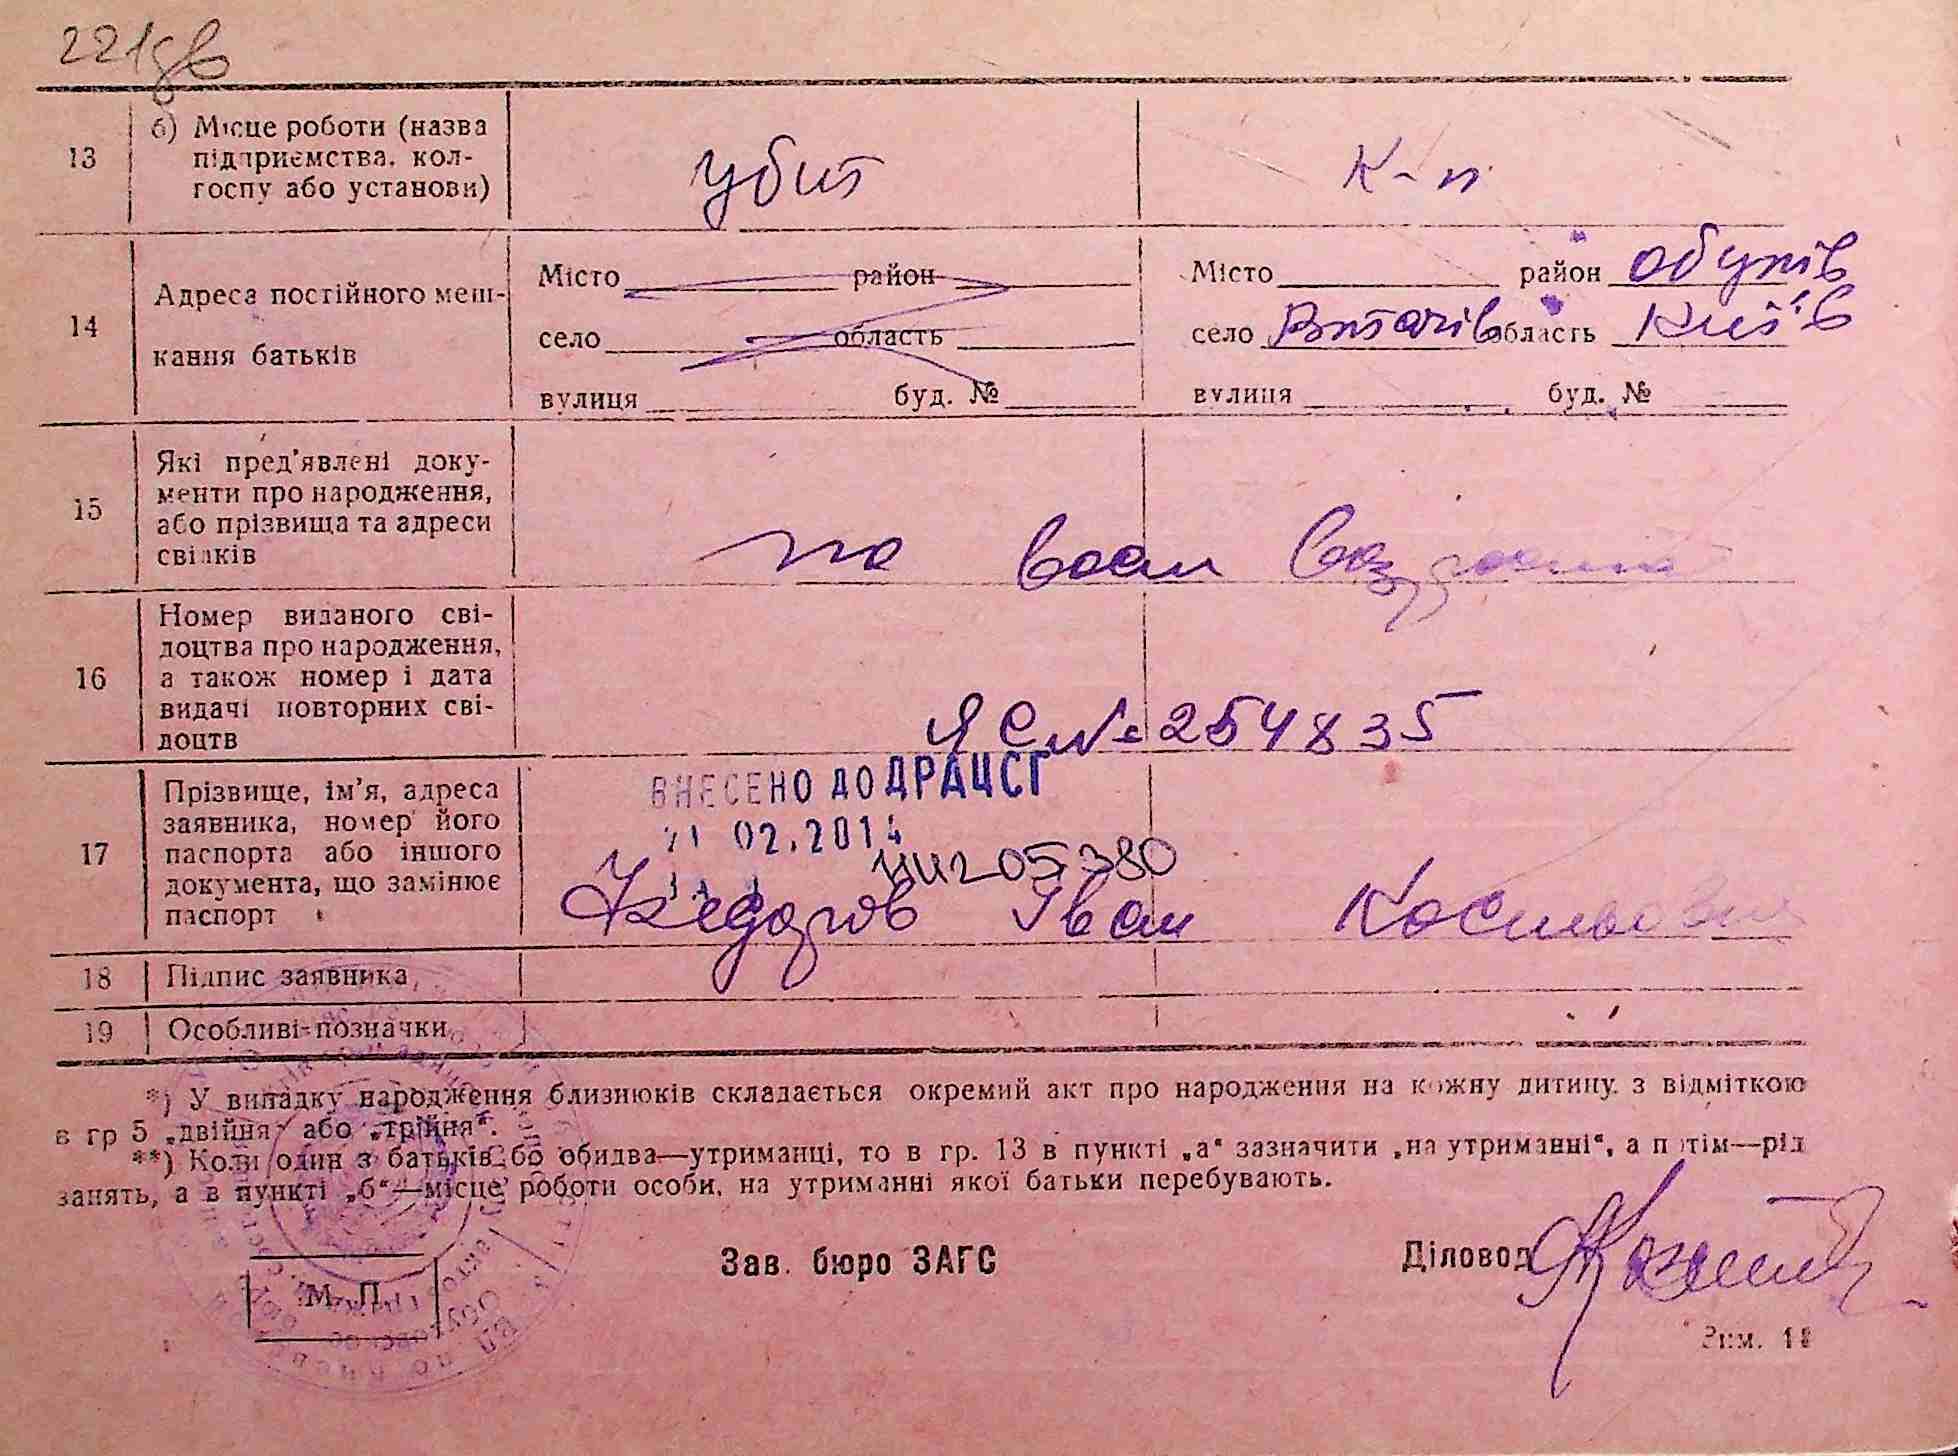 221зв
13 б) Місце роботи (назва
підприємства, кол-
госпу або установи)
убит
к-п
14 Адреса постійного меш-
кання батьків
Місто район
село область
вулиця буд. №
Місто район Обухів
село Витачів область Київ
вулиця буд. №
15 Які пред'явлені доку-
менти про народження,
або прізвища та адреси
свідків
по
16 Номер виданого сві-
доцтва про народження,
а також номер і дата
видачі повторних сві-
доцтв
ЯС № 254835
17 Прізвище, ім'я, адреса
заявника, номер його
паспорта або іншого
документа, що замінює
паспорт
ВНЕСЕНО ДО ДРАЦСГ
02.2014
205380
Іван
18 Підпис заявника
19 Особливі позначки
*) У випадку народження близнюків складається окремий акт про народження на кожну дитину з відміткою
в гр 5 „двійня" або „трійня".
**) Коли один з батьків бо обидва—утриманці, то в гр. 13 в пункті „а" зазначити „на утриманні", а потім—рід
занять, а в пункті „б"—місце роботи особи, на утриманні якої батьки перебувають.
Зав. бюро ЗАГС
Діловод
М. П.